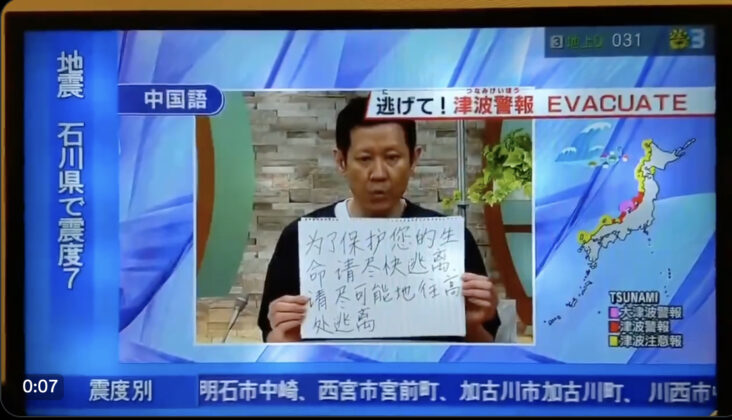 3 地上D 031
地震 石川県で震度7
中国語
に つなみけいほう
逃げて！津波警報 EVACUATE
为了保护您的生
命请尽快逃离、
请尽可能地往高
处逃离
TSUNAMI
大津波警報
津波警報
津波注意報
0:07
震度別
明石市中崎、西宮市宮前町、加古川市加古川町、川西市中